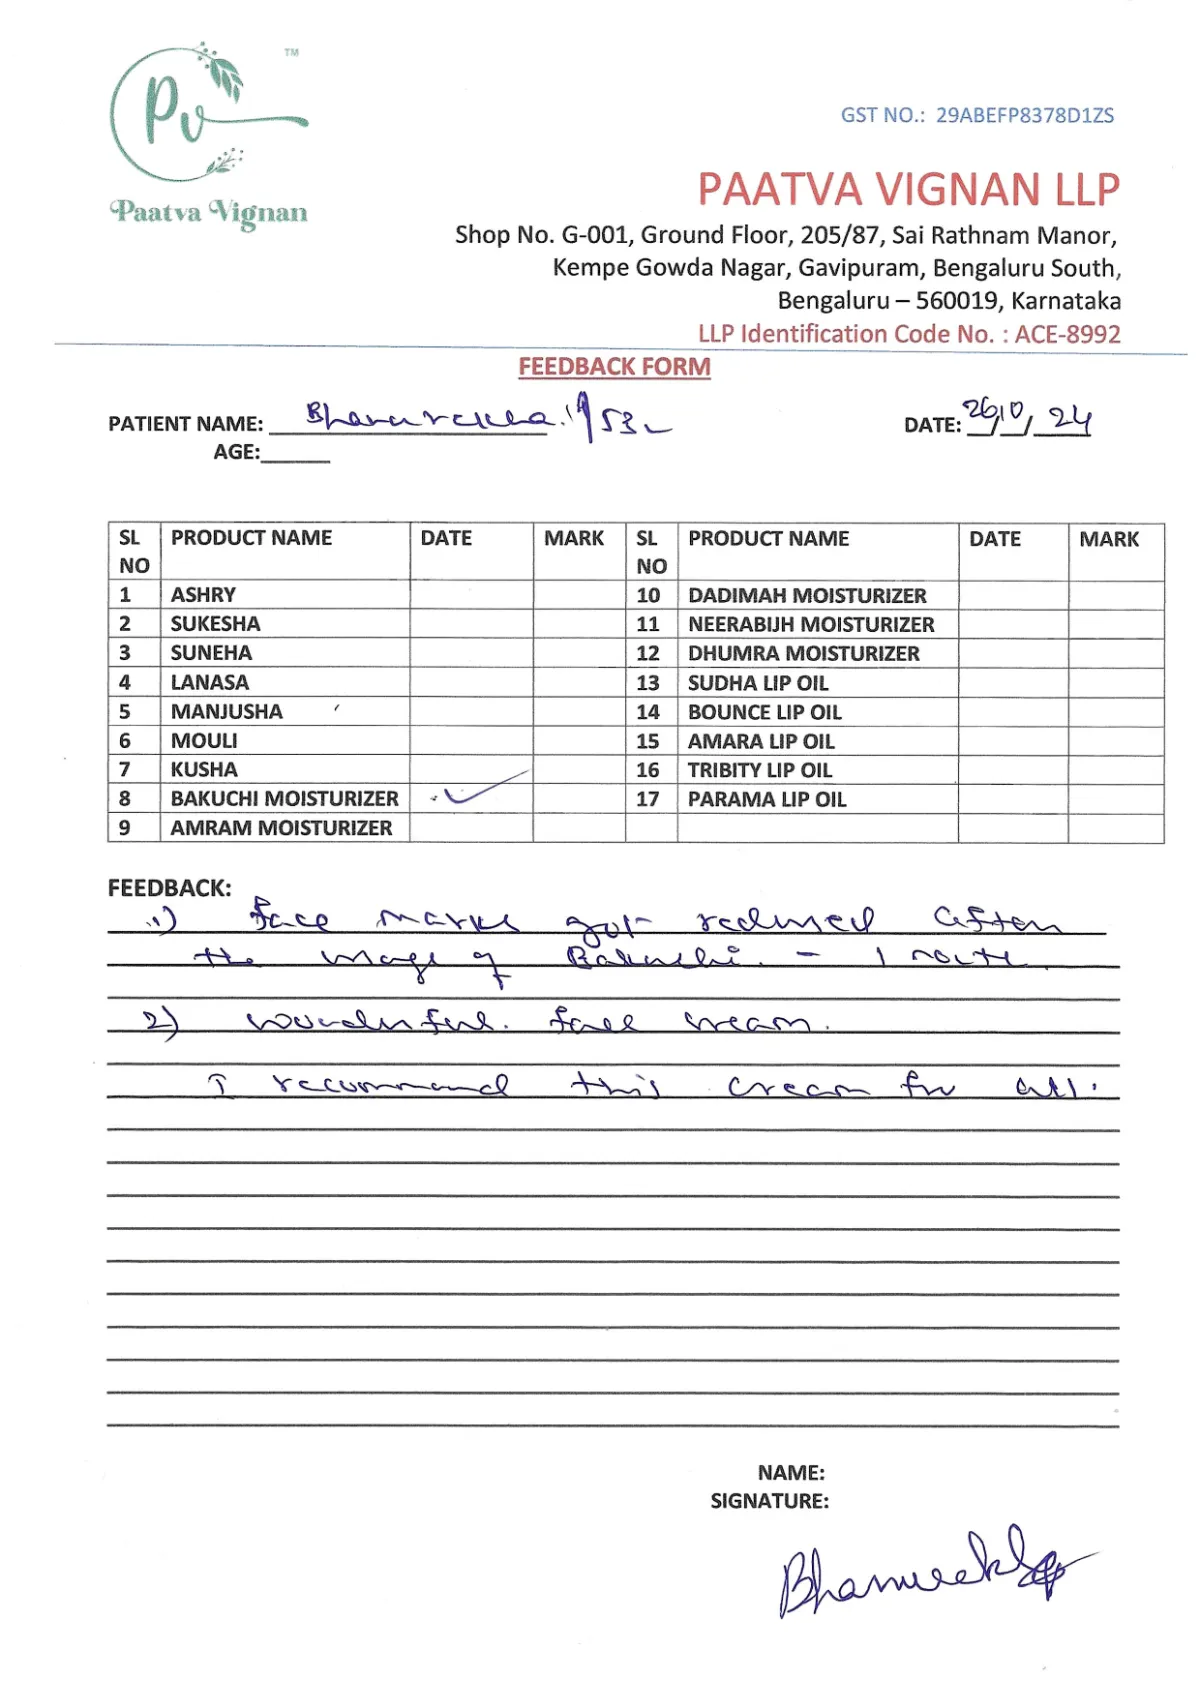 Pv
TM
Paatva Vignan
GST NO.: 29ABEFP8378D1ZS
PAATVA VIGNAN LLP
Shop No. G-001, Ground Floor, 205/87, Sai Rathnam Manor,
Kempe Gowda Nagar, Gavipuram, Bengaluru South,
Bengaluru – 560019, Karnataka
LLP Identification Code No. : ACE-8992
FEEDBACK FORM
PATIENT NAME: 53 DATE: 26/10/24
AGE:
SL NO PRODUCT NAME DATE MARK SL NO PRODUCT NAME DATE MARK
1 ASHRY 10 DADIMAH MOISTURIZER
2 SUKESHA 11 NEERABIJH MOISTURIZER
3 SUNEHA 12 DHUMRA MOISTURIZER
4 LANASA 13 SUDHA LIP OIL
5 MANJUSHA 14 BOUNCE LIP OIL
6 MOULI 15 AMARA LIP OIL
7 KUSHA 16 TRIBITY LIP OIL
8 BAKUCHI MOISTURIZER ✓ 17 PARAMA LIP OIL
9 AMRAM MOISTURIZER
FEEDBACK:
1) face marks got reduced after
the usage of Bakuchi. - 1
2) wonderful. face cream.
I recommand this cream for all.
NAME:
SIGNATURE: